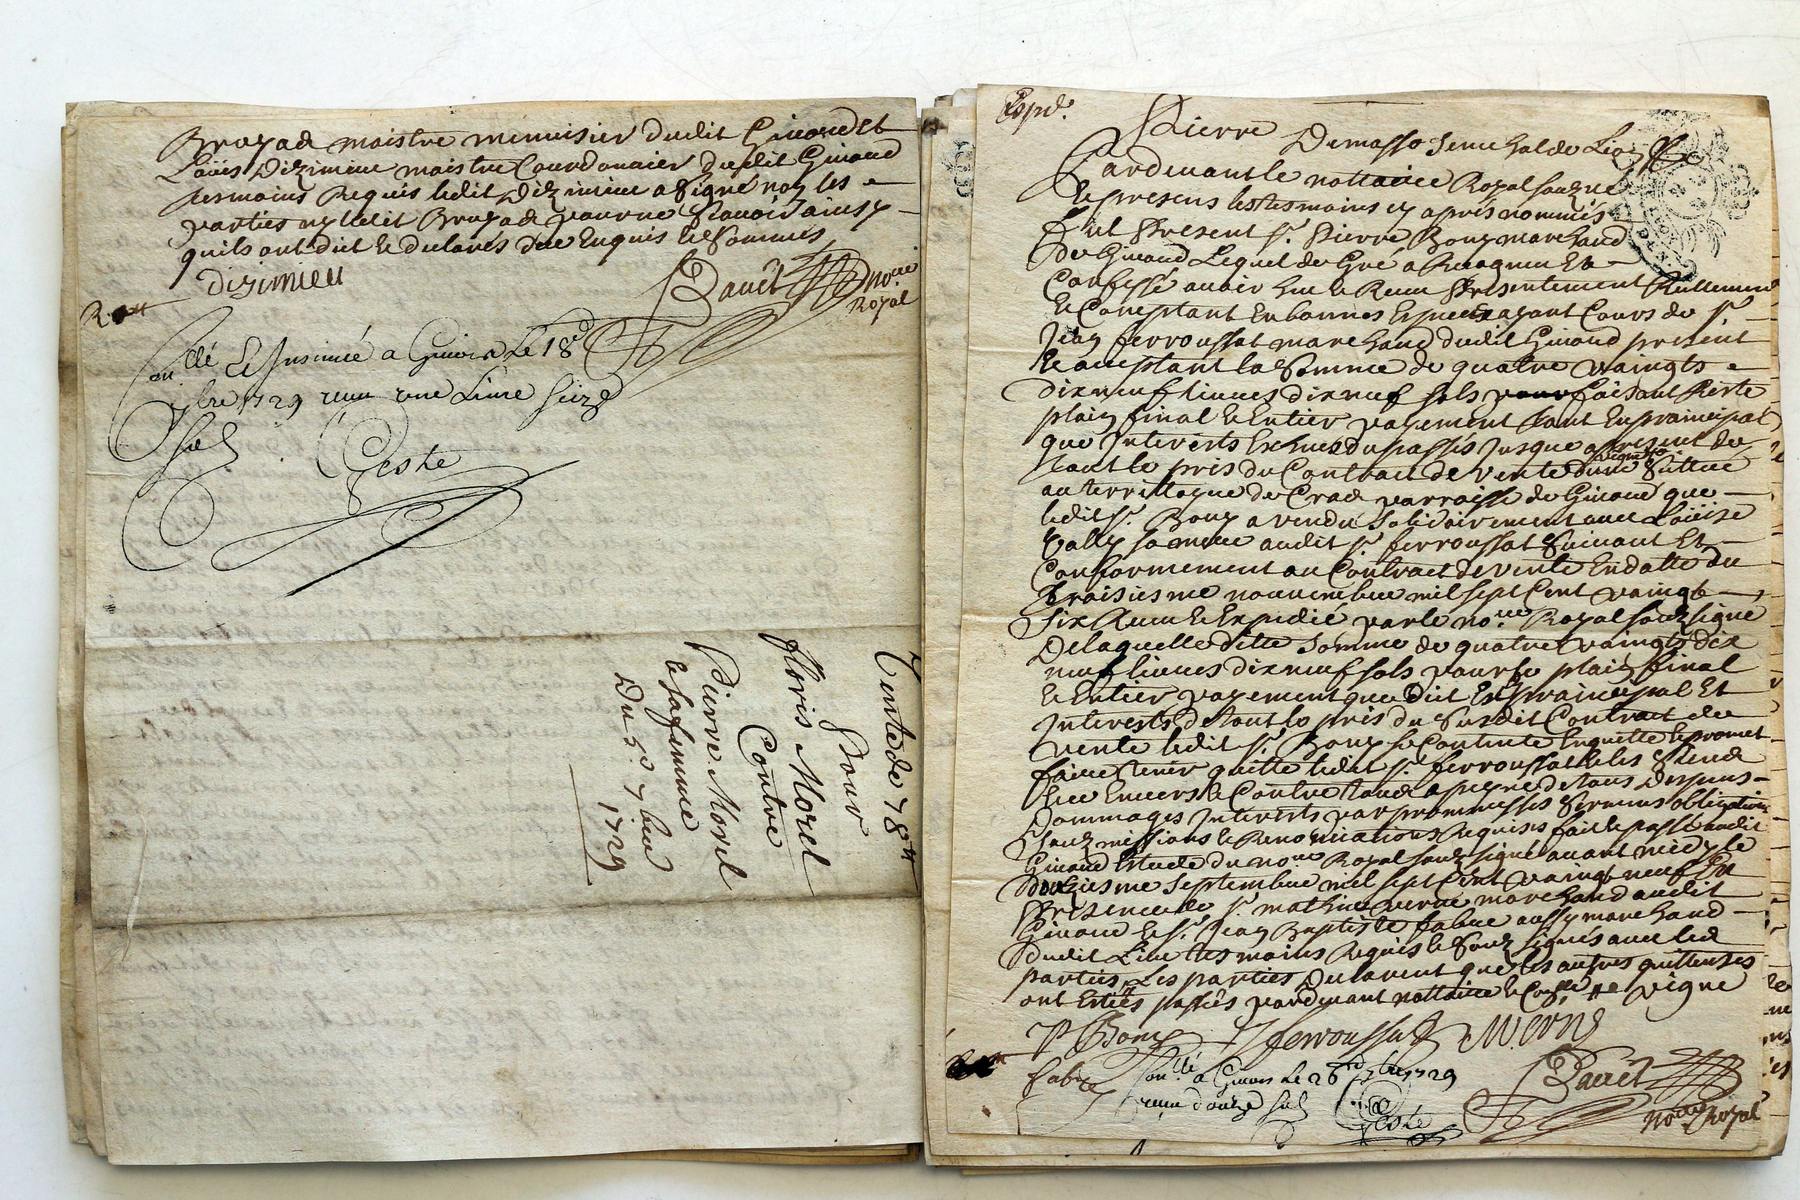 Brozad maistre menuisier dudit Givord et
Louis Dizimieu maistre Cordonnier dudit Givord
tesmoins Requis ledit Dizimieu a signé non les
parties ny ledit Brozad pour ne sçavoir ainsy
quils ont dit et declarés de ce Enquis et sommés
dizimieu
Bauet
no.re
Royal
Con.llé Et Insinué a Givors Le 18
7bre 1729 receu une Livre seize
sols
Geste
Vente de 78 tt
Pour
floris Morel
Contre
Pierre Morel
et sa femme
Du 5.e 7bre
1729
Expd.
Pierre Demasso senechal de Lion
Pardevant le nottaire Royal souzné
et presens les tesmoins cy aprés nommés
fut Present s.r Pierre Bonz marchand
de Givord Lequel de Gré a Recogneu Et
Confessé avoir heu et Receu Presentement Reellement
et Comptant En bonnes Especes ayant Cours de s.r
Jean ferroussat marchand dudit Givord present
et acceptant la somme de quatre vaingts
dix neuf livres dix neuf sols faisant Reste
plain final et Entier payement tant En praincipal
que Interests Escheus du passés jusque a present de
tout le pris du Contrat de vente dune vigne situé
au territoire de Craz parroisse de Givord que
ledit s.r Bonz a vendu solidairement avec Loüize
sa mere audit s.r ferroussat suivant Et
Conformement au Contract de vente En datte du
traisiesme novembre mil sept Cent vaingt
six Receu et Expedié par le no.re Royal souzsigné
De laquelle ditte somme de quatre vaingts dix
neuf livres dix neuf sols pour le plain final
et Entier payement que dit Est praincipal Et
Interests de tout le pris du susdit Contract de
vente ledit s.r Bonz se Contente En quitte et promet
faire tenir quitte ledit s.r ferroussat et les siens
Envers et Contre tous a peyne de tous Despens
Dommages Interests par promesses serments obligations
souzmissions et Renonciations Requises fait et passé audit
Givord Estude du no.re Royal souzsigné avant midy le
douziesme septembre mil sept Cent vaingt neuf En
Presence de s.r mathieu verne marchand audit
Givord et s.r Jean Baptiste fabre aussy marchand
dudit Lieu tesmoins Requis et souzsignés avec les
parties Les parties Declarent que les autres quittences
ont Estés passés pardevant nottaire vigne
P Bonz Jferroussat Mverne
fabre
Con.llé a Givors Le 26 7bre 1729
receu douze sols
Geste
Bauet
no.re Royal